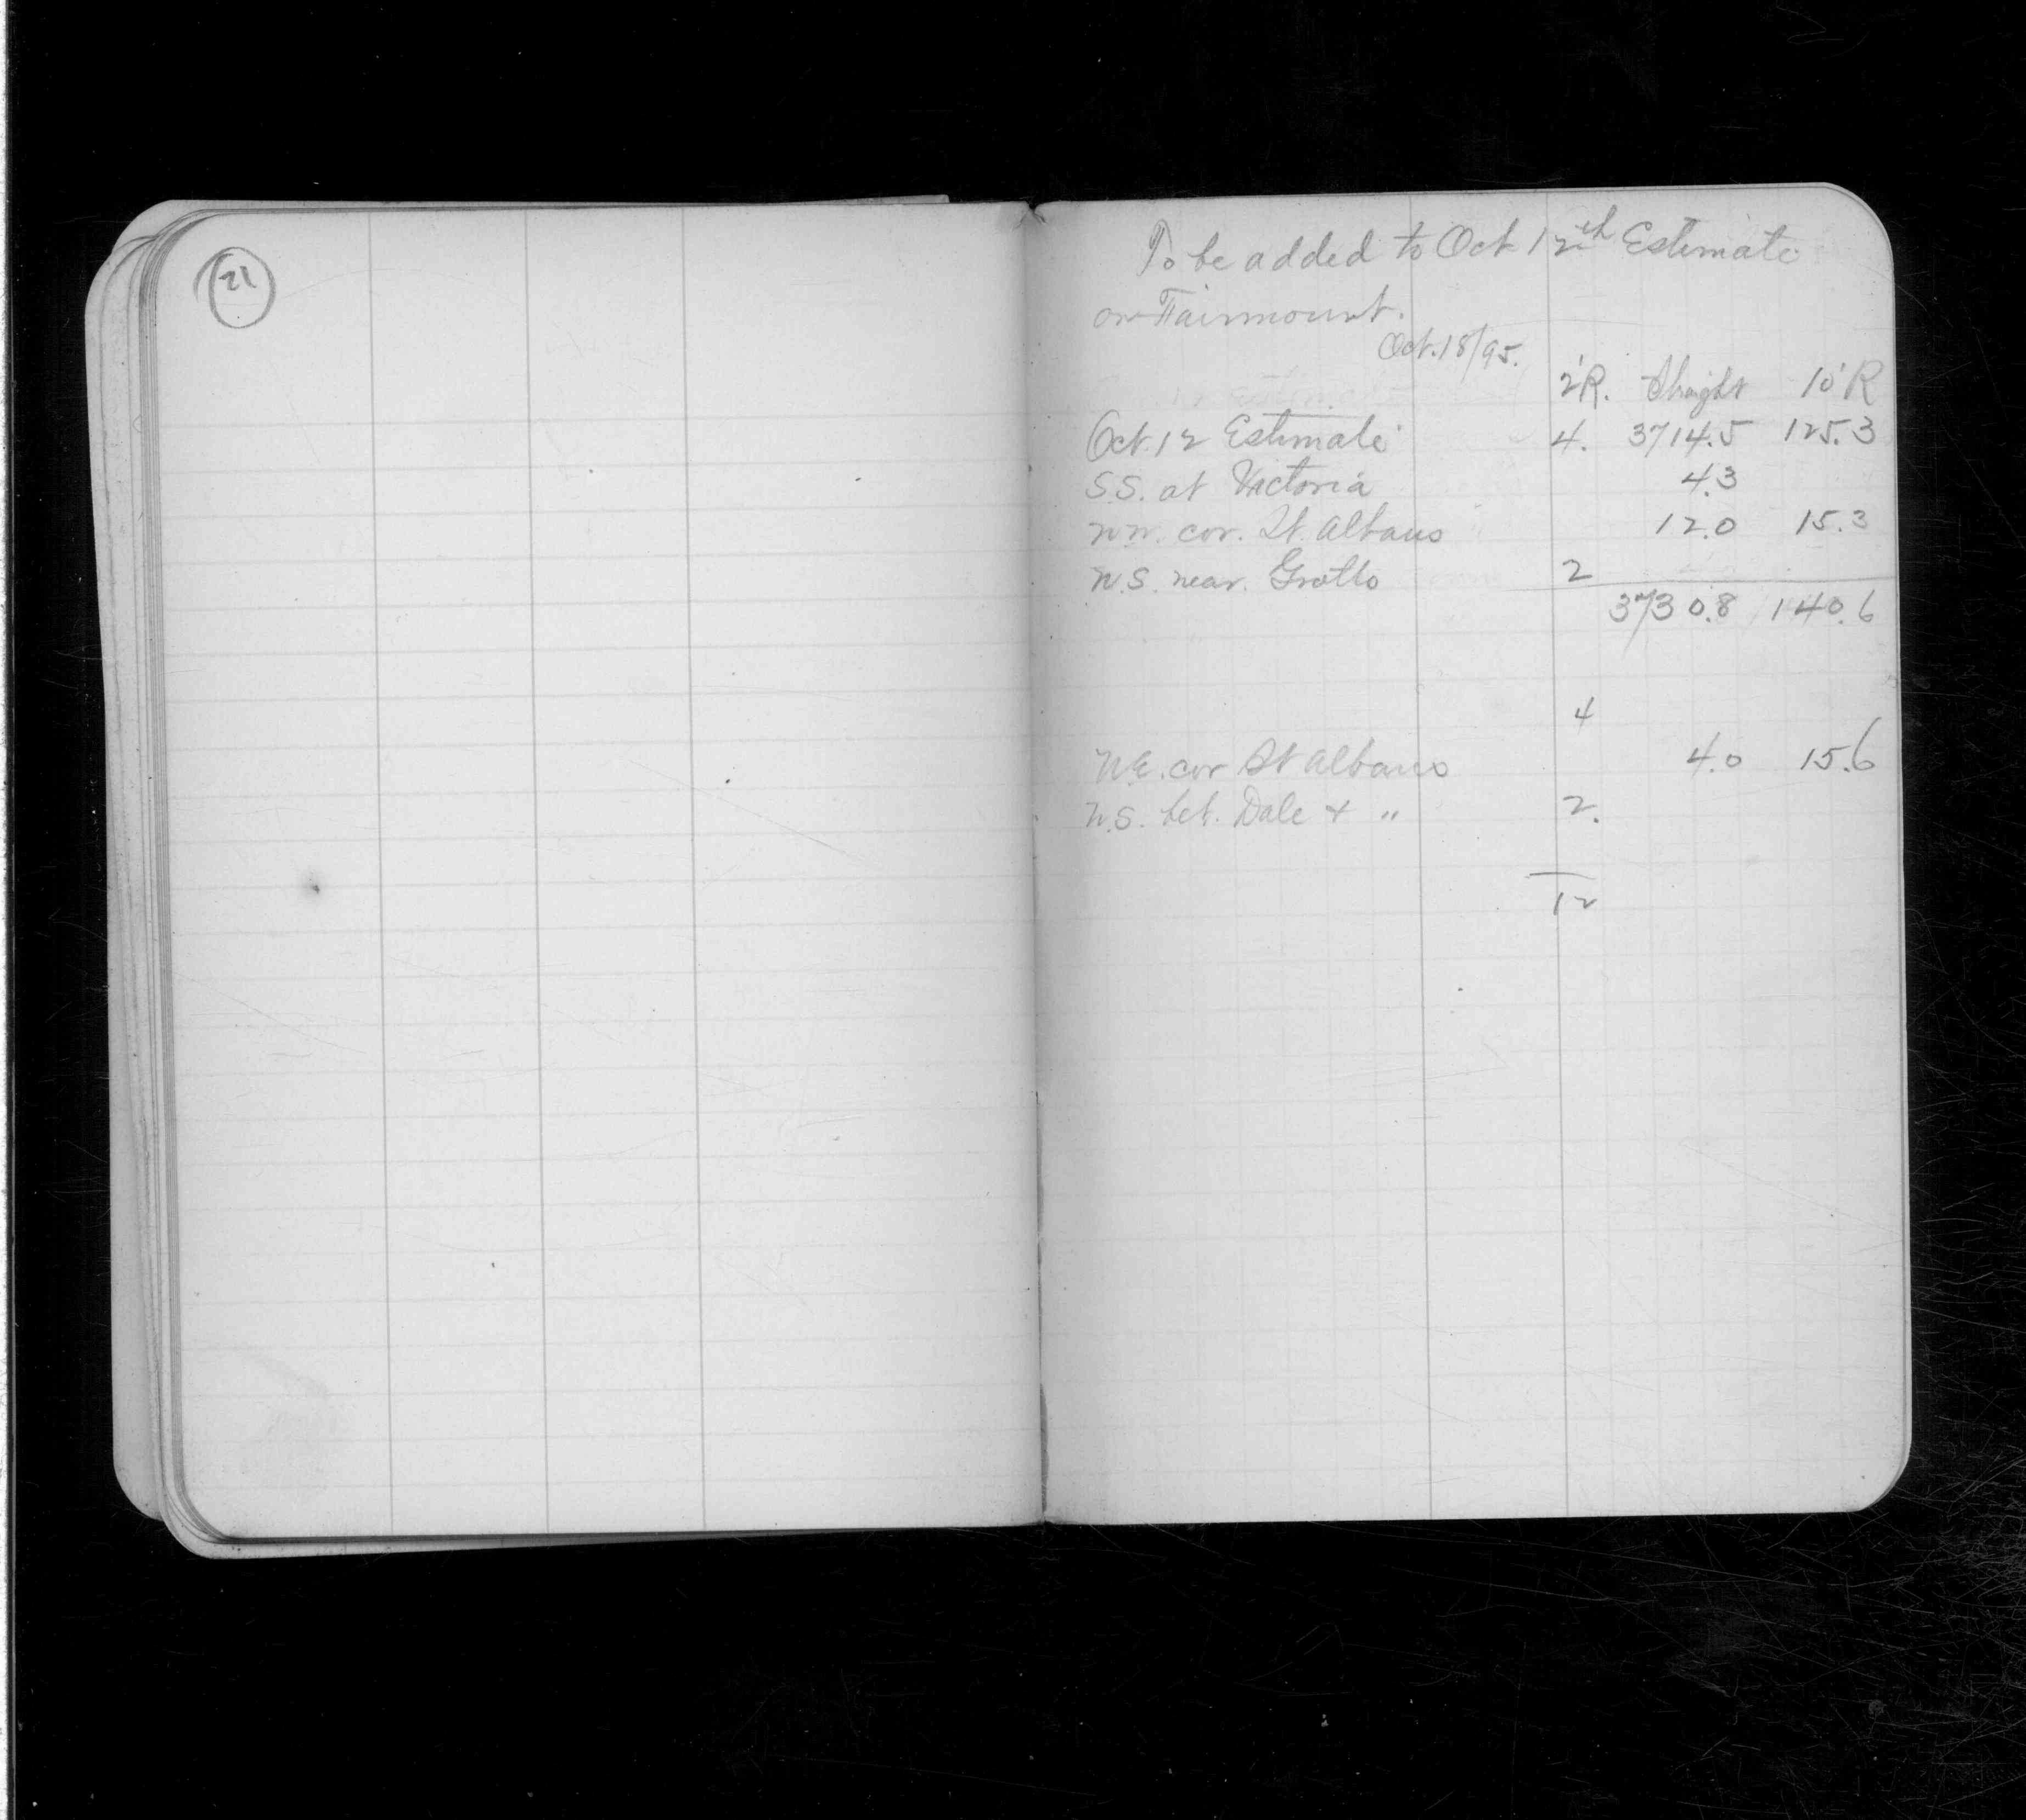 21
To be added to Oct 12th Estimate
on Fairmount.
Oct. 18/95.
2'R. Straight 10'R
Oct. 12 Estimate 4. 3714.5 125.3
S.S. at Victoria 4.3
N.W. cor. St. Albans 12.0 15.3
N.S. near. Grotto 2
3730.8 140.6
4
N.E. cor St Albans 4.0 15.6
N.S. bet. Dale & " 2.
12